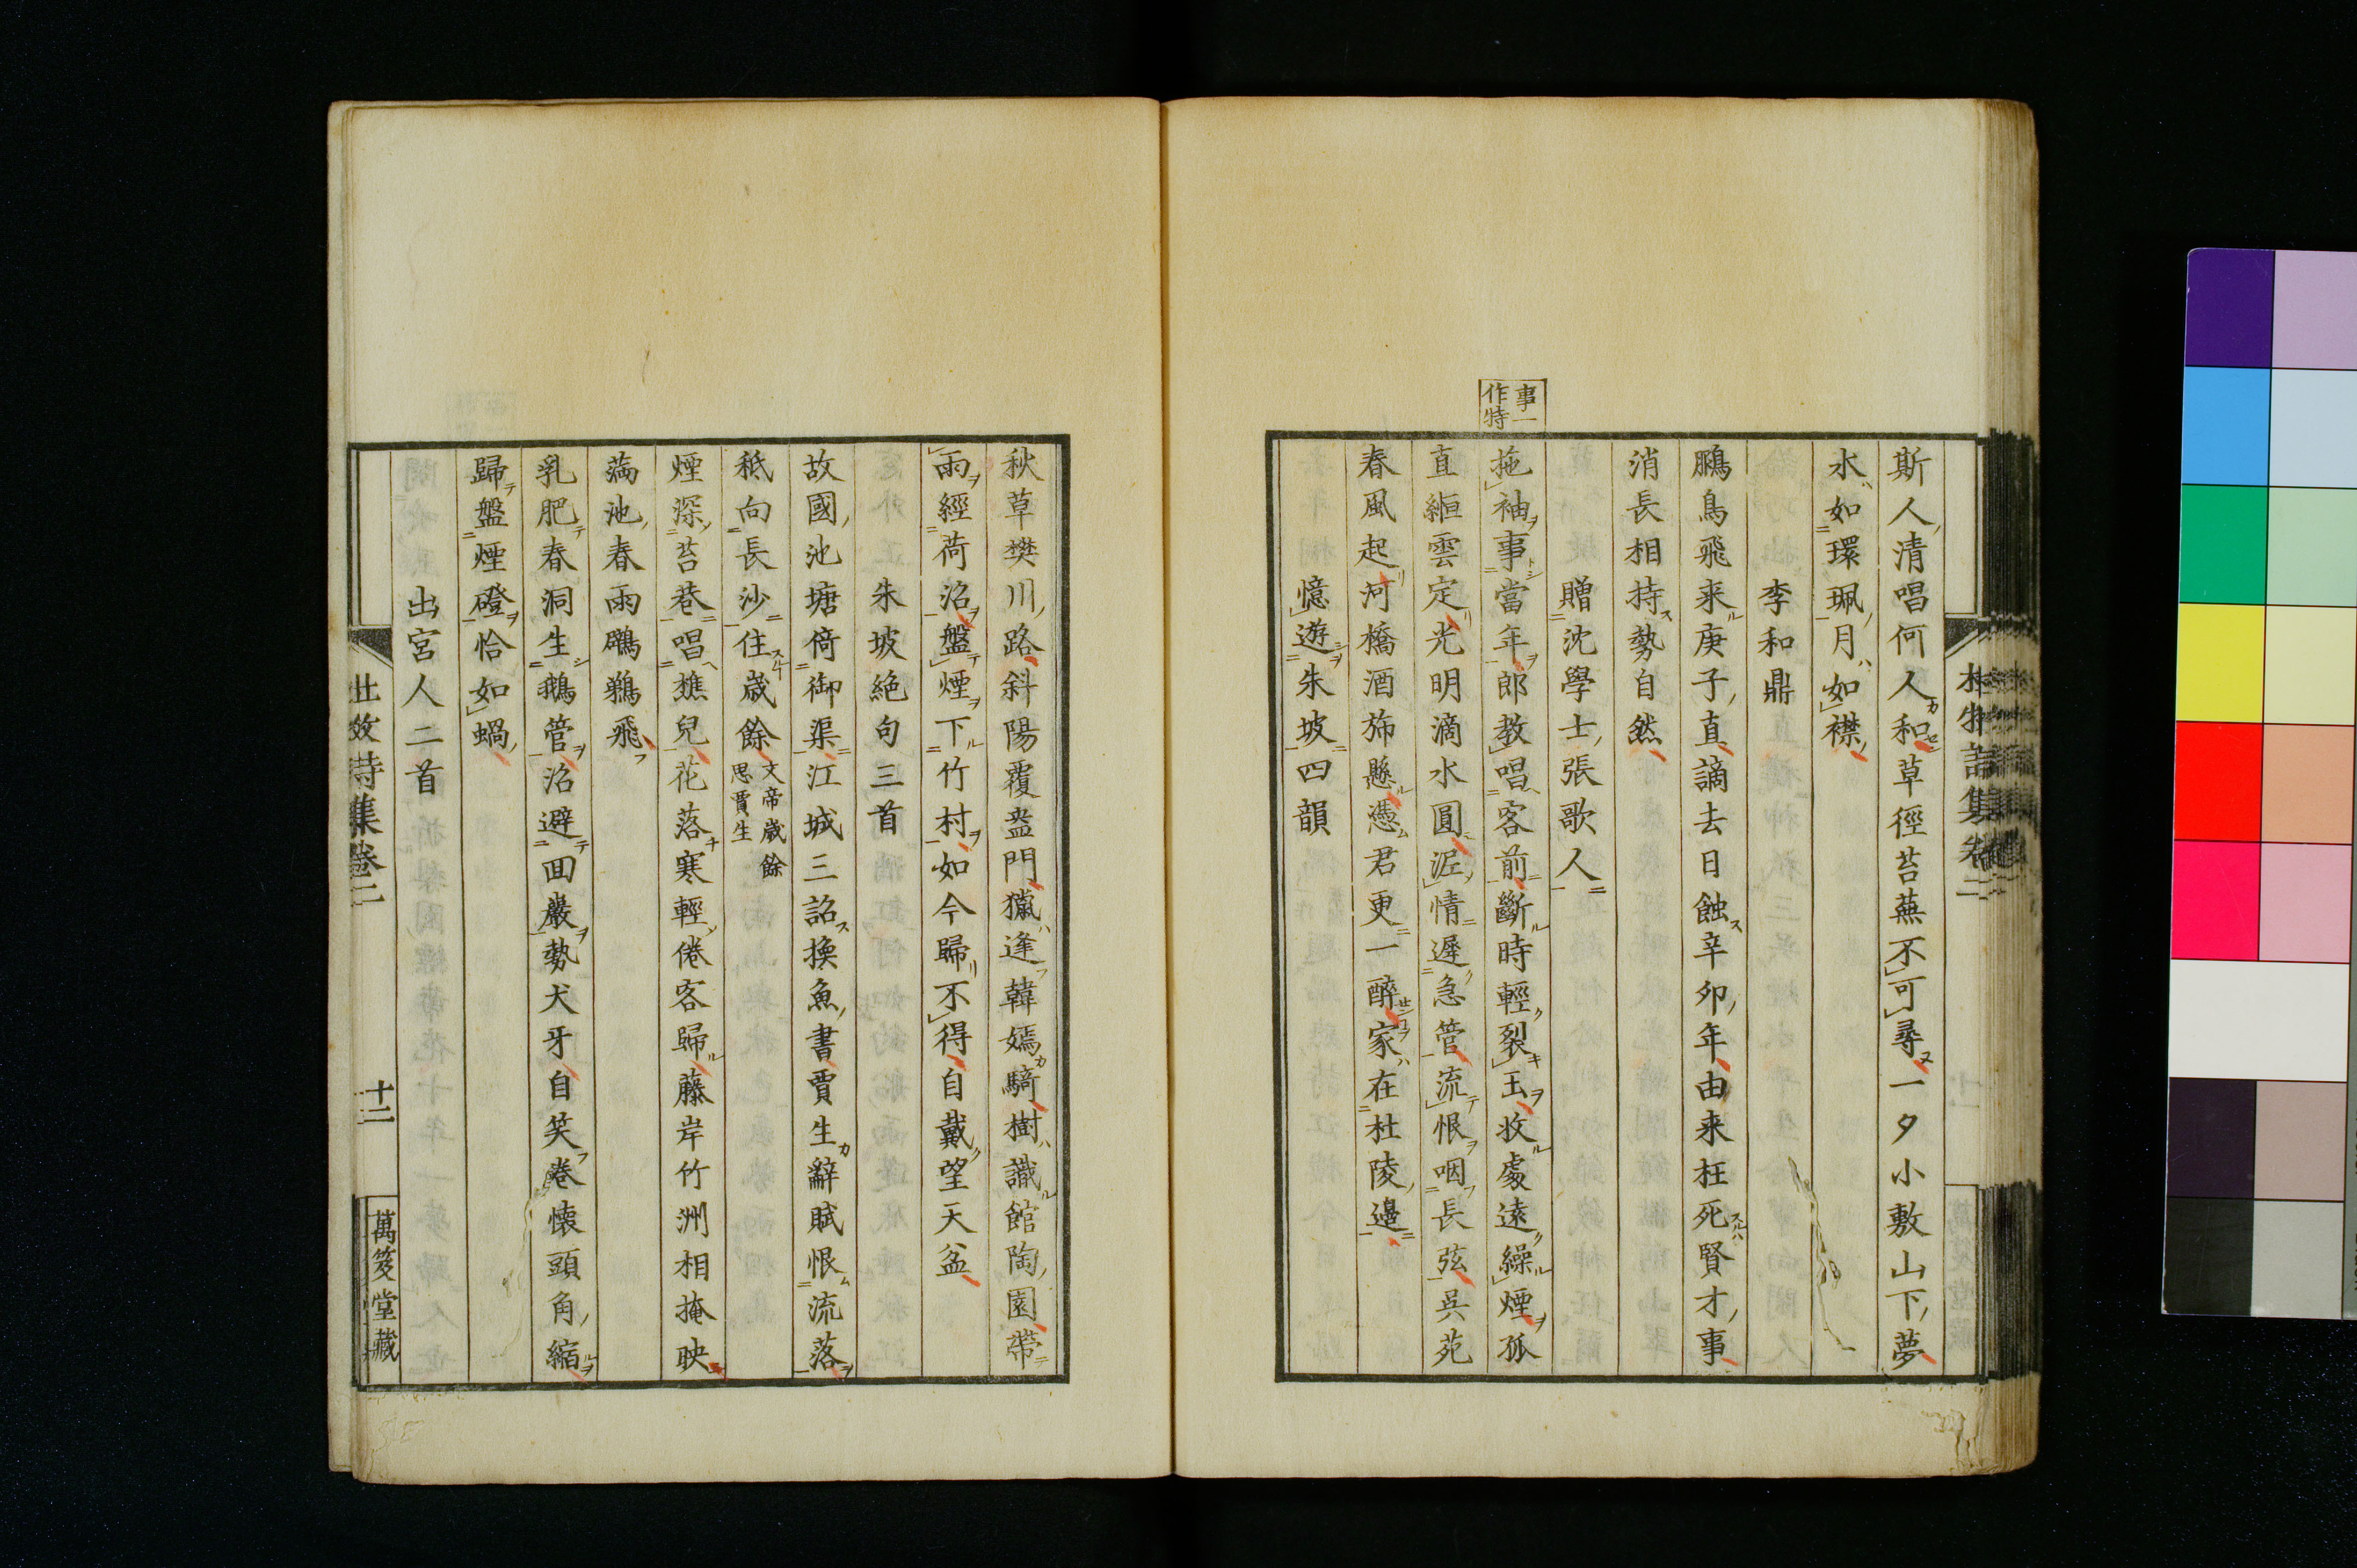 斯人清唱何人和草徑苔蕪不可尋一夕小敷山下夢
水如環珮月如襟
李和鼎
鵩鳥飛来庚子直謫去日蝕辛卯年由来枉死賢才事
消長相持勢自然
贈沈學士張歌人
事一作特
拖袖事當年郎教唱客前斷時輕裂玉收處遠繰煙孤
直絙雲定光明滴水圓泥情遲急管流恨咽長弦吳苑
春風起河橋酒斾懸憑君更一醉家在杜陵邉
憶遊朱坡四韻
秋草樊川路斜陽覆盎門獵逢韓嫣騎樹識館陶園帶
雨經荷沼盤煙下竹村如今歸不得自戴望天盆
朱坡絶句三首
故國池塘倚御渠江城三詔換魚書賈生辭賦恨流落
秪向長沙住歲餘文帝歲餘思賈生
煙深苔巷唱樵兒花落寒輕倦客歸藤岸竹洲相掩映
滿池春雨鸊鵜飛
乳肥春洞生鵝管沼避囬巖勢犬牙自笑卷懷頭角縮
歸盤煙磴恰如蝸
出宮人二首
十二
萬笈堂藏